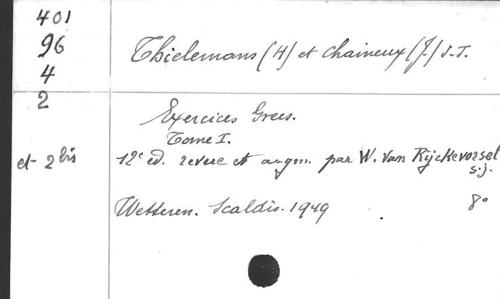 401
96
4
2
et 2 bis
Thielemans (H) et Chaineux (J.) S.J.
Exercices Grecs.
Tome I.
12e ed. revue et augm. par W. Van Rijckevorsel
s.j.
Wetteren. Scaldis. 1949 8°